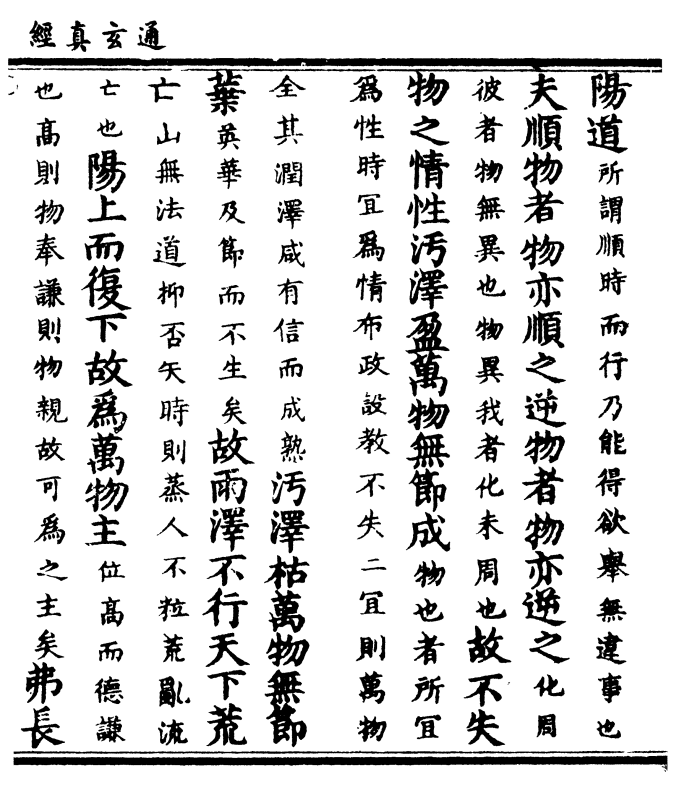 通玄真經
陽道所謂順時而行乃能得欲舉無違事也
夫順物者物亦順之逆物者物亦逆之化周
彼者物無異也物異我者化未周也故不失
物之情性汚澤盈萬物無節成物也者所冝
爲性時冝爲情布政設教不失二冝則萬物
全其潤澤咸有信而成熟汚澤枯萬物無節
葉英華及節而不生矣故雨澤不行天下荒
亡山無法道抑否矢時則蒸人不粒荒亂流
亡也陽上而復下故爲萬物主位髙而德謙
也髙則物奉謙則物親故可爲之主矣弗長